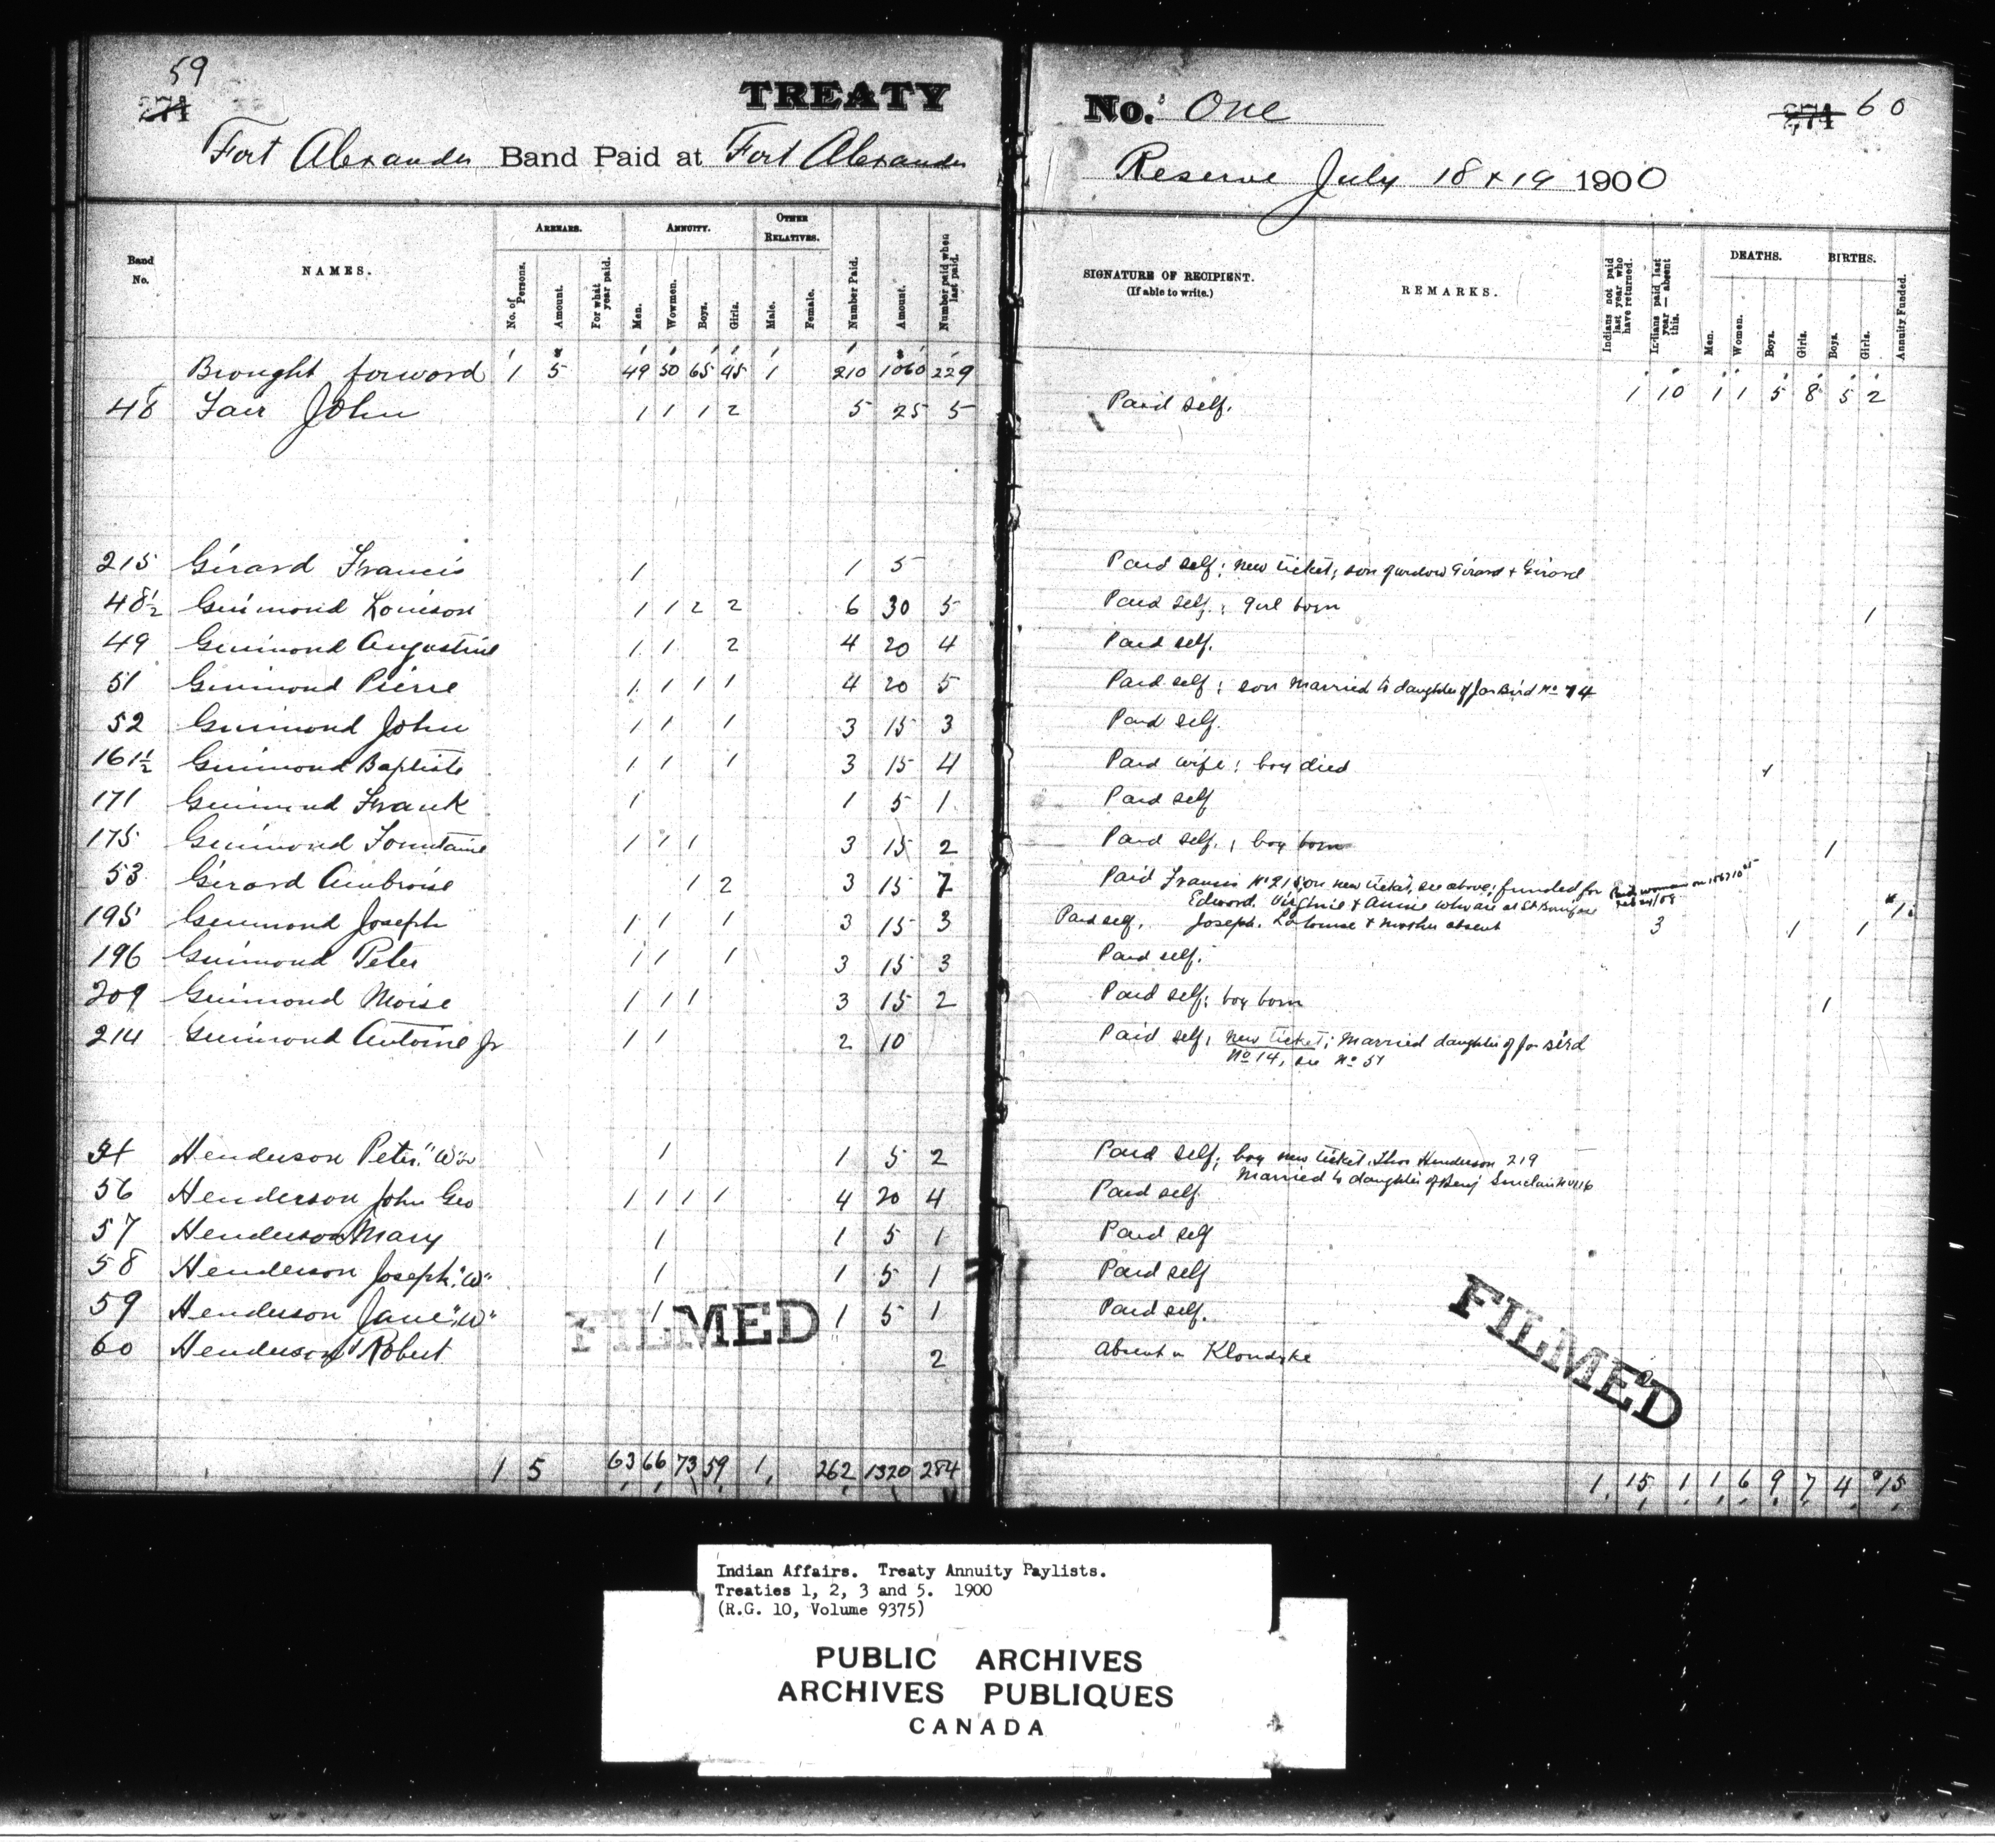 59
274
TREATY
No. One
274 60
Fort Alexander Band Paid at Fort Alexander
Reserve July 18 & 19 1900
Band No.
NAMES.
ARREARS.
No. of Persons.
Amount.
For what year paid.
ANNUITY.
Men.
Wowmen.
Boys.
Girls.
OTHER RELATIVES.
Male.
Female.
Number Paid.
Amount.
Number paid when last paid.
SIGNATURE OF RECIPIENT.
(If able to write.)
REMARKS.
Indians not paid last year who have returned.
Indians paid last year — absent this.
DEATHS.
Men.
Women.
Boys.
Girls.
BIRTHS.
Boys.
Girls.
Annuity Funded.
Brought forword 1 5 49 50 65 45 1 210 1060 229 1 10 1 1 5 8 5 2
48 John 1 1 1 2 5 25 5 Paid self.
215 Girard Francis 1 1 5 Paid self; new ticket; son of widow Girard
48½ Guimond Louison 1 1 2 2 6 30 5 Paid self; girl born 1
49 Guimond Augustine 1 1 2 4 20 4 Paid self.
51 Guimond Pierre 1 1 1 1 4 20 5 Paid self; son married to daughter of Jas Bird No
52 Guimond John 1 1 1 3 15 3 Paid self.
161½ Guimond Baptiste 1 1 1 3 15 4 Paid wife; boy died 1
171 Guimond Frank 1 1 5 1 Paid self
175 Guimond Fountaine 1 1 1 3 15 2 Paid self; boy born 1
53 Girard Ambroise 1 2 3 15 7 Paid Francis No 215 on new ticket, see above; funded for
Edward Virginie & Annie who are at St Boniface
195 Guimond Joseph 1 1 1 3 15 3 Paid self. Joseph, & mother absent 3 1 1
196 Guimond Peter 1 1 1 3 15 3 Paid self.
209 Guimond Moise 1 1 1 3 15 2 Paid self; boy born 1
214 Guimond Antoine Jr 1 1 2 10 Paid self; new ticket; married daughter of Jas Bird
No 14, see No 51
Henderson Peter "W" 1 1 5 2 Paid self; boy new ticket, Thos Henderson 219
Married to daughter of Benj Sinclair
56 Henderson John Geo 1 1 1 1 4 20 4 Paid self
57 Henderson Mary 1 1 5 1 Paid self
58 Henderson Joseph "W" 1 1 5 1 Paid self
59 Henderson Jane "W" 1 1 5 1 Paid self.
60 Henderson Robert 2 Absent in Klondyke 2
FILMED
FILMED
1 5 63 66 73 59 1 262 1320 284 1 15 1 1 6 9 7 4 15
Indian Affairs. Treaty Annuity Paylists.
Treaties 1, 2, 3 and 5. 1900
(R.G. 10, Volume 9375)
PUBLIC ARCHIVES
ARCHIVES PUBLIQUES
CANADA